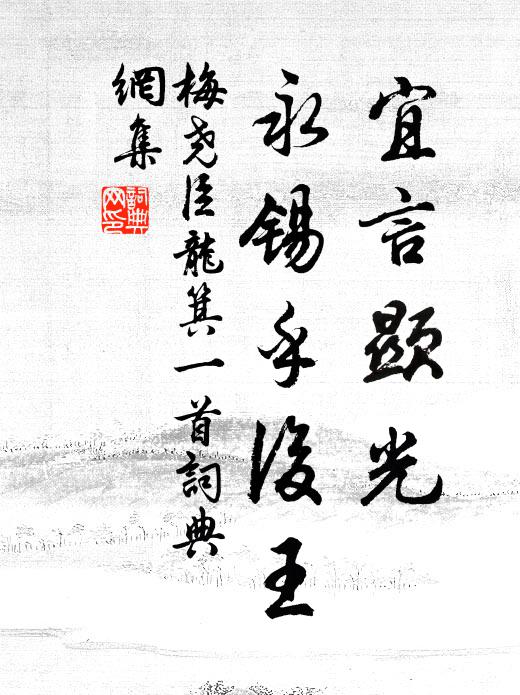 宜言顯光
永錫乎後王
梅堯臣龍箕一首詞典
網集
詞典
网印